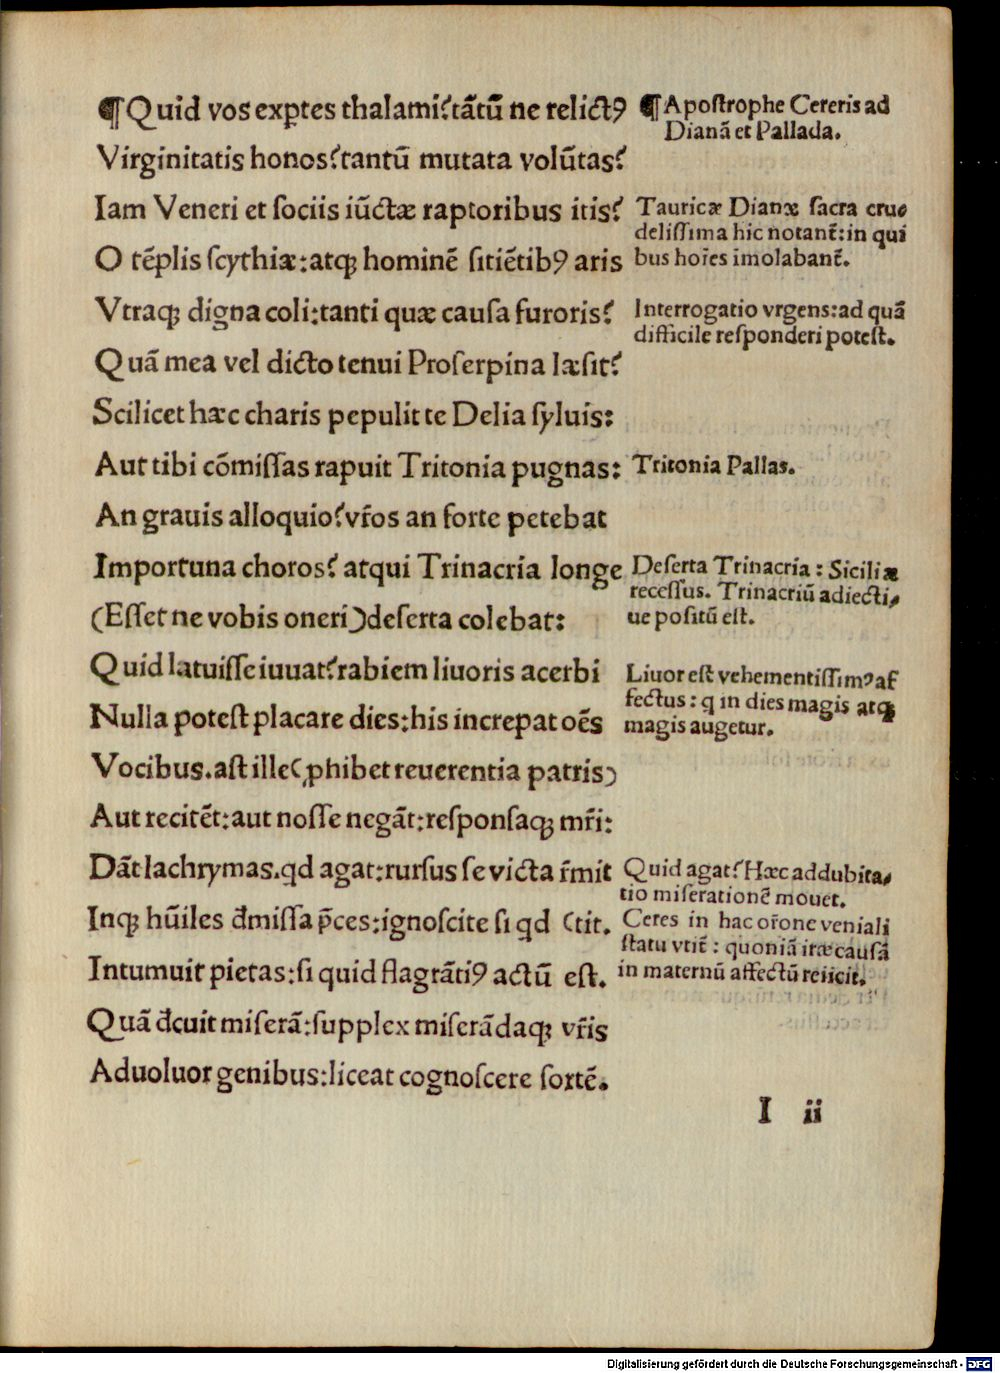 ¶Quid vos exꝑtes thalami?tātū ne relictꝰ
Virginitatis honos?tantū mutata volūtas?
Iam Veneri et ſociis iūctæ raptoribus itis?
O tēplis ſcythiæ:atqꝫ hominē ſitiētibꝰ aris
Vtraqꝫ digna coli:tanti quæ cauſa furoris?
Quā mea vel dicto tenui Proſerpina læſit?
Scilicet hæc charis pepulit te Delia ſyluis:
Aut tibi cōmiſſas rapuit Tritonia pugnas:
An grauis alloquio?vr̄os an forte petebat
Importuna choros? atqui Trinacria longe
(Eſſet ne vobis oneri)deſerta colebat:
Quid latuiſſe iuuat?rabiem liuoris acerbi
Nulla poteſt placare dies:his increpat oēs
Vocibus.aſt ille(ꝓhibet reuerentia patris)
Aut recitēt:aut noſſe negāt:reſponſaqꝫ mr̄i:
Dāt lachrymas.qd agat:rurſus ſe victa r̄mit
Inqꝫ hūiles đmiſſa p̄ces:ignoſcite ſi qd (tit.
Intumuit pietas:ſi quid flagrātiꝰ actū eſt.
Quā đcuit miſerā:ſupplex miſerādaqꝫ vr̄is
Aduoluor genibus:liceat cognoſcere ſortē.
¶Apoſtrophe Cereris ad
Dianā et Pallada.
Tauricæ Dianæ ſacra cru⸗
deliſſima hic notant̄:in qui
bus hoīes īmolabant̄.
Interrogatio vrgens:ad quā
difficile reſponderi poteſt.
Tritonia Pallas.
Deſerta Trinacria: Siciliæ
receſſus. Trinacriū adiecti⸗
ue poſitū eſt.
Liuor eſt vehementiſſimꝰ af
fectus: q in dies magis atqꝫ
magis augetur.
Quid agat? Hæc addubita⸗
tio miſerationē mouet.
Ceres in hac or̄one veniali
ſtatu vtit̄: quoniā iræ cauſā
in maternū affectū reiicit.
I ii
Digitalisierung gefördert durch die Deutsche Forschungsgemeinschaft - DFG